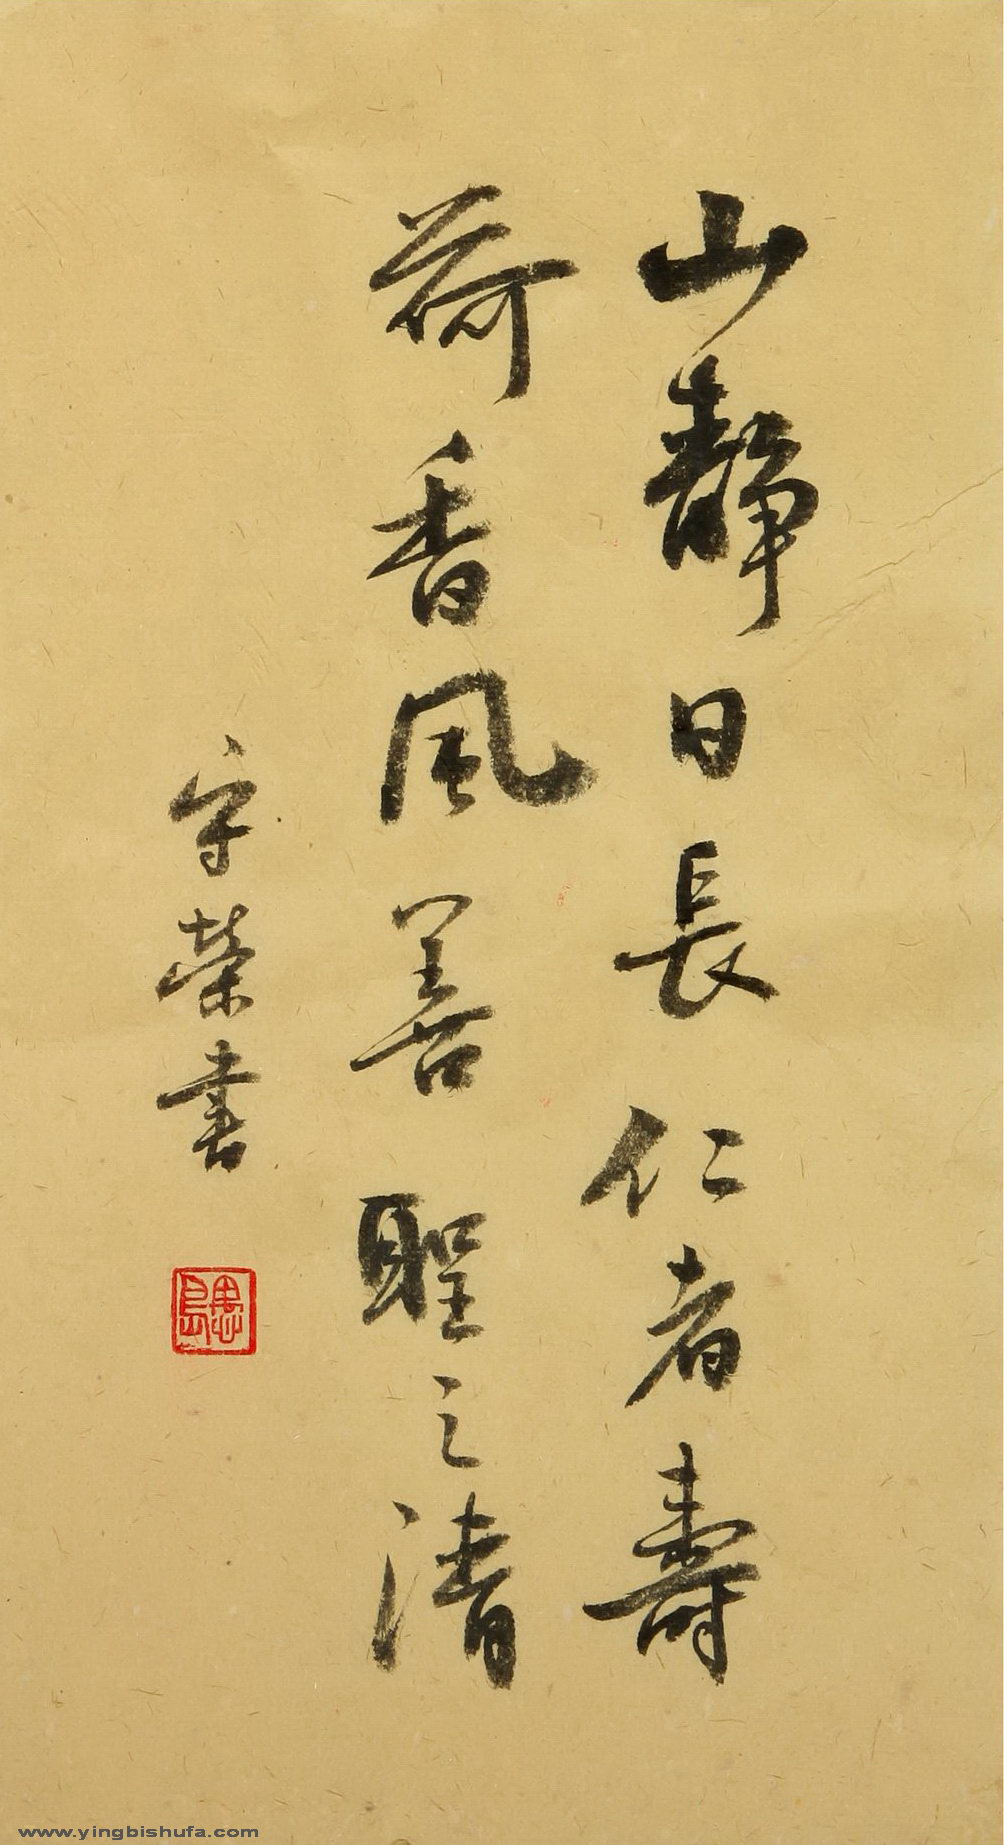 山靜日長仁者壽
荷香風善聖之清
守榮書
愚島
www.yingbishufa.com